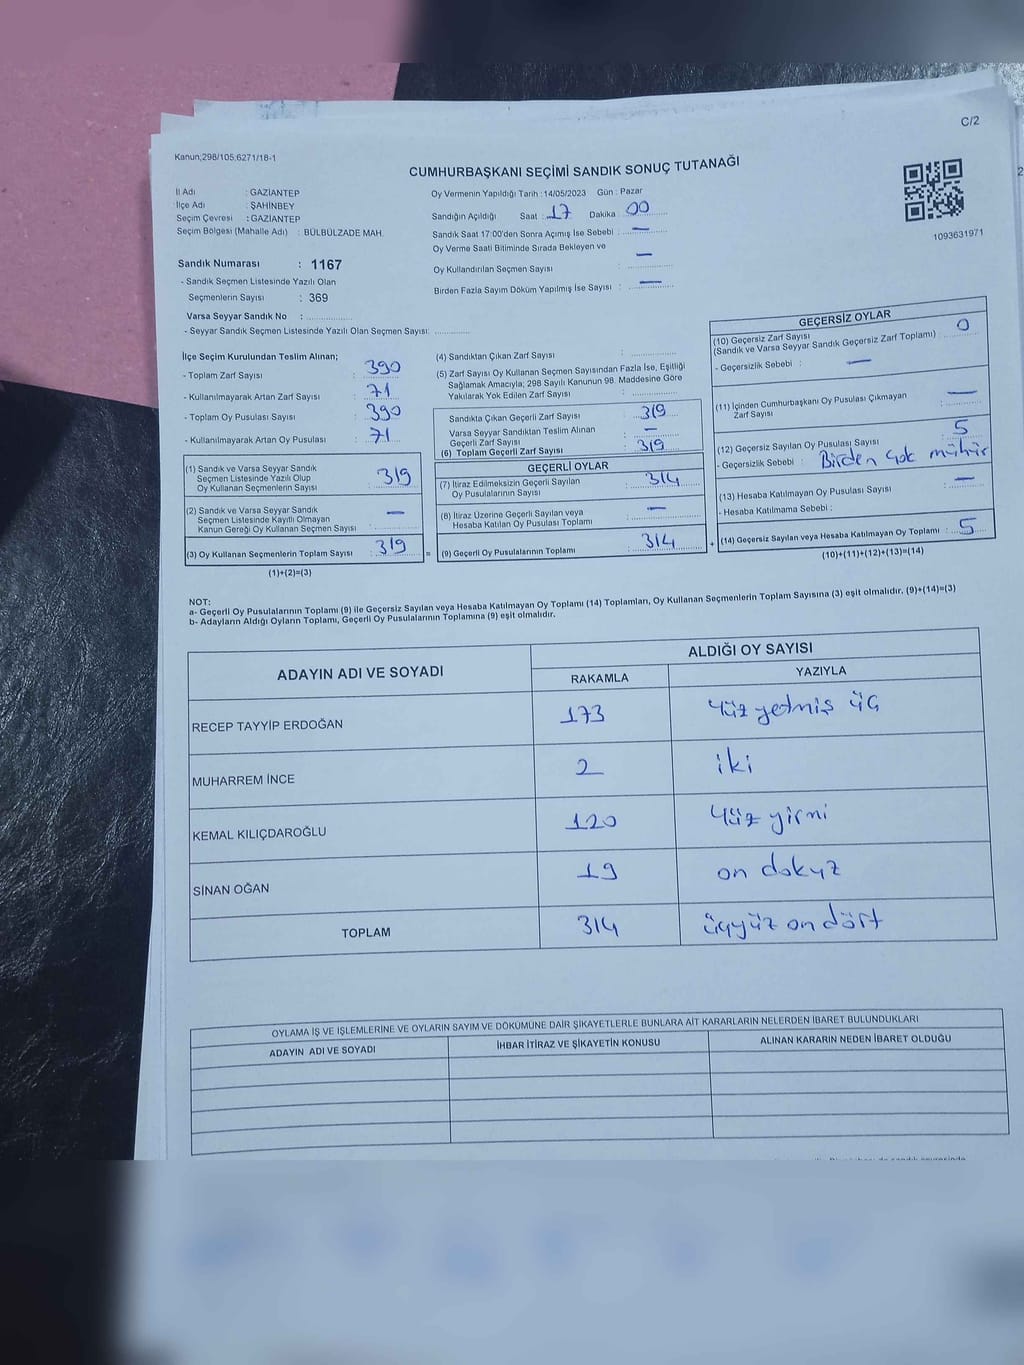 C/2
Kanun;298/105,6271/18-1
CUMHURBAŞKANI SEÇİMİ SANDIK SONUÇ TUTANAĞI
İl Adı : GAZİANTEP
İlçe Adı : ŞAHİNBEY
Seçim Çevresi : GAZİANTEP
Seçim Bölgesi (Mahalle Adı) : BÜLBÜLZADE MAH.
Oy Vermenin Yapıldığı Tarih :14/05/2023 Gün : Pazar
Sandığın Açıldığı Saat : 17 Dakika 00
Sandık Saat 17:00'den Sonra Açımış İse Sebebi : —
Oy Verme Saati Bitiminde Sırada Bekleyen ve
Oy Kullandırılan Seçmen Sayısı : —
Birden Fazla Sayım Döküm Yapılmış İse Sayısı : —
1093631971
Sandık Numarası : 1167
- Sandık Seçmen Listesinde Yazılı Olan
Seçmenlerin Sayısı : 369
Varsa Seyyar Sandık No :
- Seyyar Sandık Seçmen Listesinde Yazılı Olan Seçmen Sayısı:
İlçe Seçim Kurulundan Teslim Alınan;
- Toplam Zarf Sayısı : 390
- Kullanılmayarak Artan Zarf Sayısı : 71
- Toplam Oy Pusulası Sayısı : 390
- Kullanılmayarak Artan Oy Pusulası : 71
(1) Sandık ve Varsa Seyyar Sandık
Seçmen Listesinde Yazılı Olup
Oy Kullanan Seçmenlerin Sayısı : 319
(2) Sandık ve Varsa Seyyar Sandık
Seçmen Listesinde Kayıtlı Olmayan
Kanun Gereği Oy Kullanan Seçmen Sayısı : —
(3) Oy Kullanan Seçmenlerin Toplam Sayısı : 319
(1)+(2)=(3)
(4) Sandıktan Çıkan Zarf Sayısı :
(5) Zarf Sayısı Oy Kullanan Seçmen Sayısından Fazla İse, Eşitliği
Sağlamak Amacıyla; 298 Sayılı Kanunun 98. Maddesine Göre
Yakılarak Yok Edilen Zarf Sayısı :
Sandıkta Çıkan Geçerli Zarf Sayısı : 319
Varsa Seyyar Sandıktan Teslim Alınan
Geçerli Zarf Sayısı : —
(6) Toplam Geçerli Zarf Sayısı : 319
GEÇERLİ OYLAR
(7) İtiraz Edilmeksizin Geçerli Sayılan
Oy Pusulalarının Sayısı : 314
(8) İtiraz Üzerine Geçerli Sayılan veya
Hesaba Katılan Oy Pusulası Toplamı : —
= (9) Geçerli Oy Pusulalarının Toplamı : 314
GEÇERSİZ OYLAR
(10) Geçersiz Zarf Sayısı
(Sandık ve Varsa Seyyar Sandık Geçersiz Zarf Toplamı) : 0
- Geçersizlik Sebebi : —
(11) İçinden Cumhurbaşkanı Oy Pusulası Çıkmayan
Zarf Sayısı : —
(12) Geçersiz Sayılan Oy Pusulası Sayısı : 5
- Geçersizlik Sebebi : Birden çok mühür
(13) Hesaba Katılmayan Oy Pusulası Sayısı : —
- Hesaba Katılmama Sebebi :
+ (14) Geçersiz Sayılan veya Hesaba Katılmayan Oy Toplamı : 5
(10)+(11)+(12)+(13)=(14)
NOT:
a- Geçerli Oy Pusulalarının Toplamı (9) ile Geçersiz Sayılan veya Hesaba Katılmayan Oy Toplamı (14) Toplamları, Oy Kullanan Seçmenlerin Toplam Sayısına (3) eşit olmalıdır. (9)+(14)=(3)
b- Adayların Aldığı Oyların Toplamı, Geçerli Oy Pusulalarının Toplamına (9) eşit olmalıdır.
ADAYIN ADI VE SOYADI
ALDIĞI OY SAYISI
RAKAMLA YAZIYLA
RECEP TAYYİP ERDOĞAN 173 yüz yetmiş üç
MUHARREM İNCE 2 iki
KEMAL KILIÇDAROĞLU 120 yüz yirmi
SİNAN OĞAN 19 on dokuz
TOPLAM 314 üçyüz on dört
OYLAMA İŞ VE İŞLEMLERİNE VE OYLARIN SAYIM VE DÖKÜMÜNE DAİR ŞİKAYETLERLE BUNLARA AİT KARARLARIN NELERDEN İBARET BULUNDUKLARI
ADAYIN ADI VE SOYADI İHBAR İTİRAZ VE ŞİKAYETİN KONUSU ALINAN KARARIN NEDEN İBARET OLDUĞU